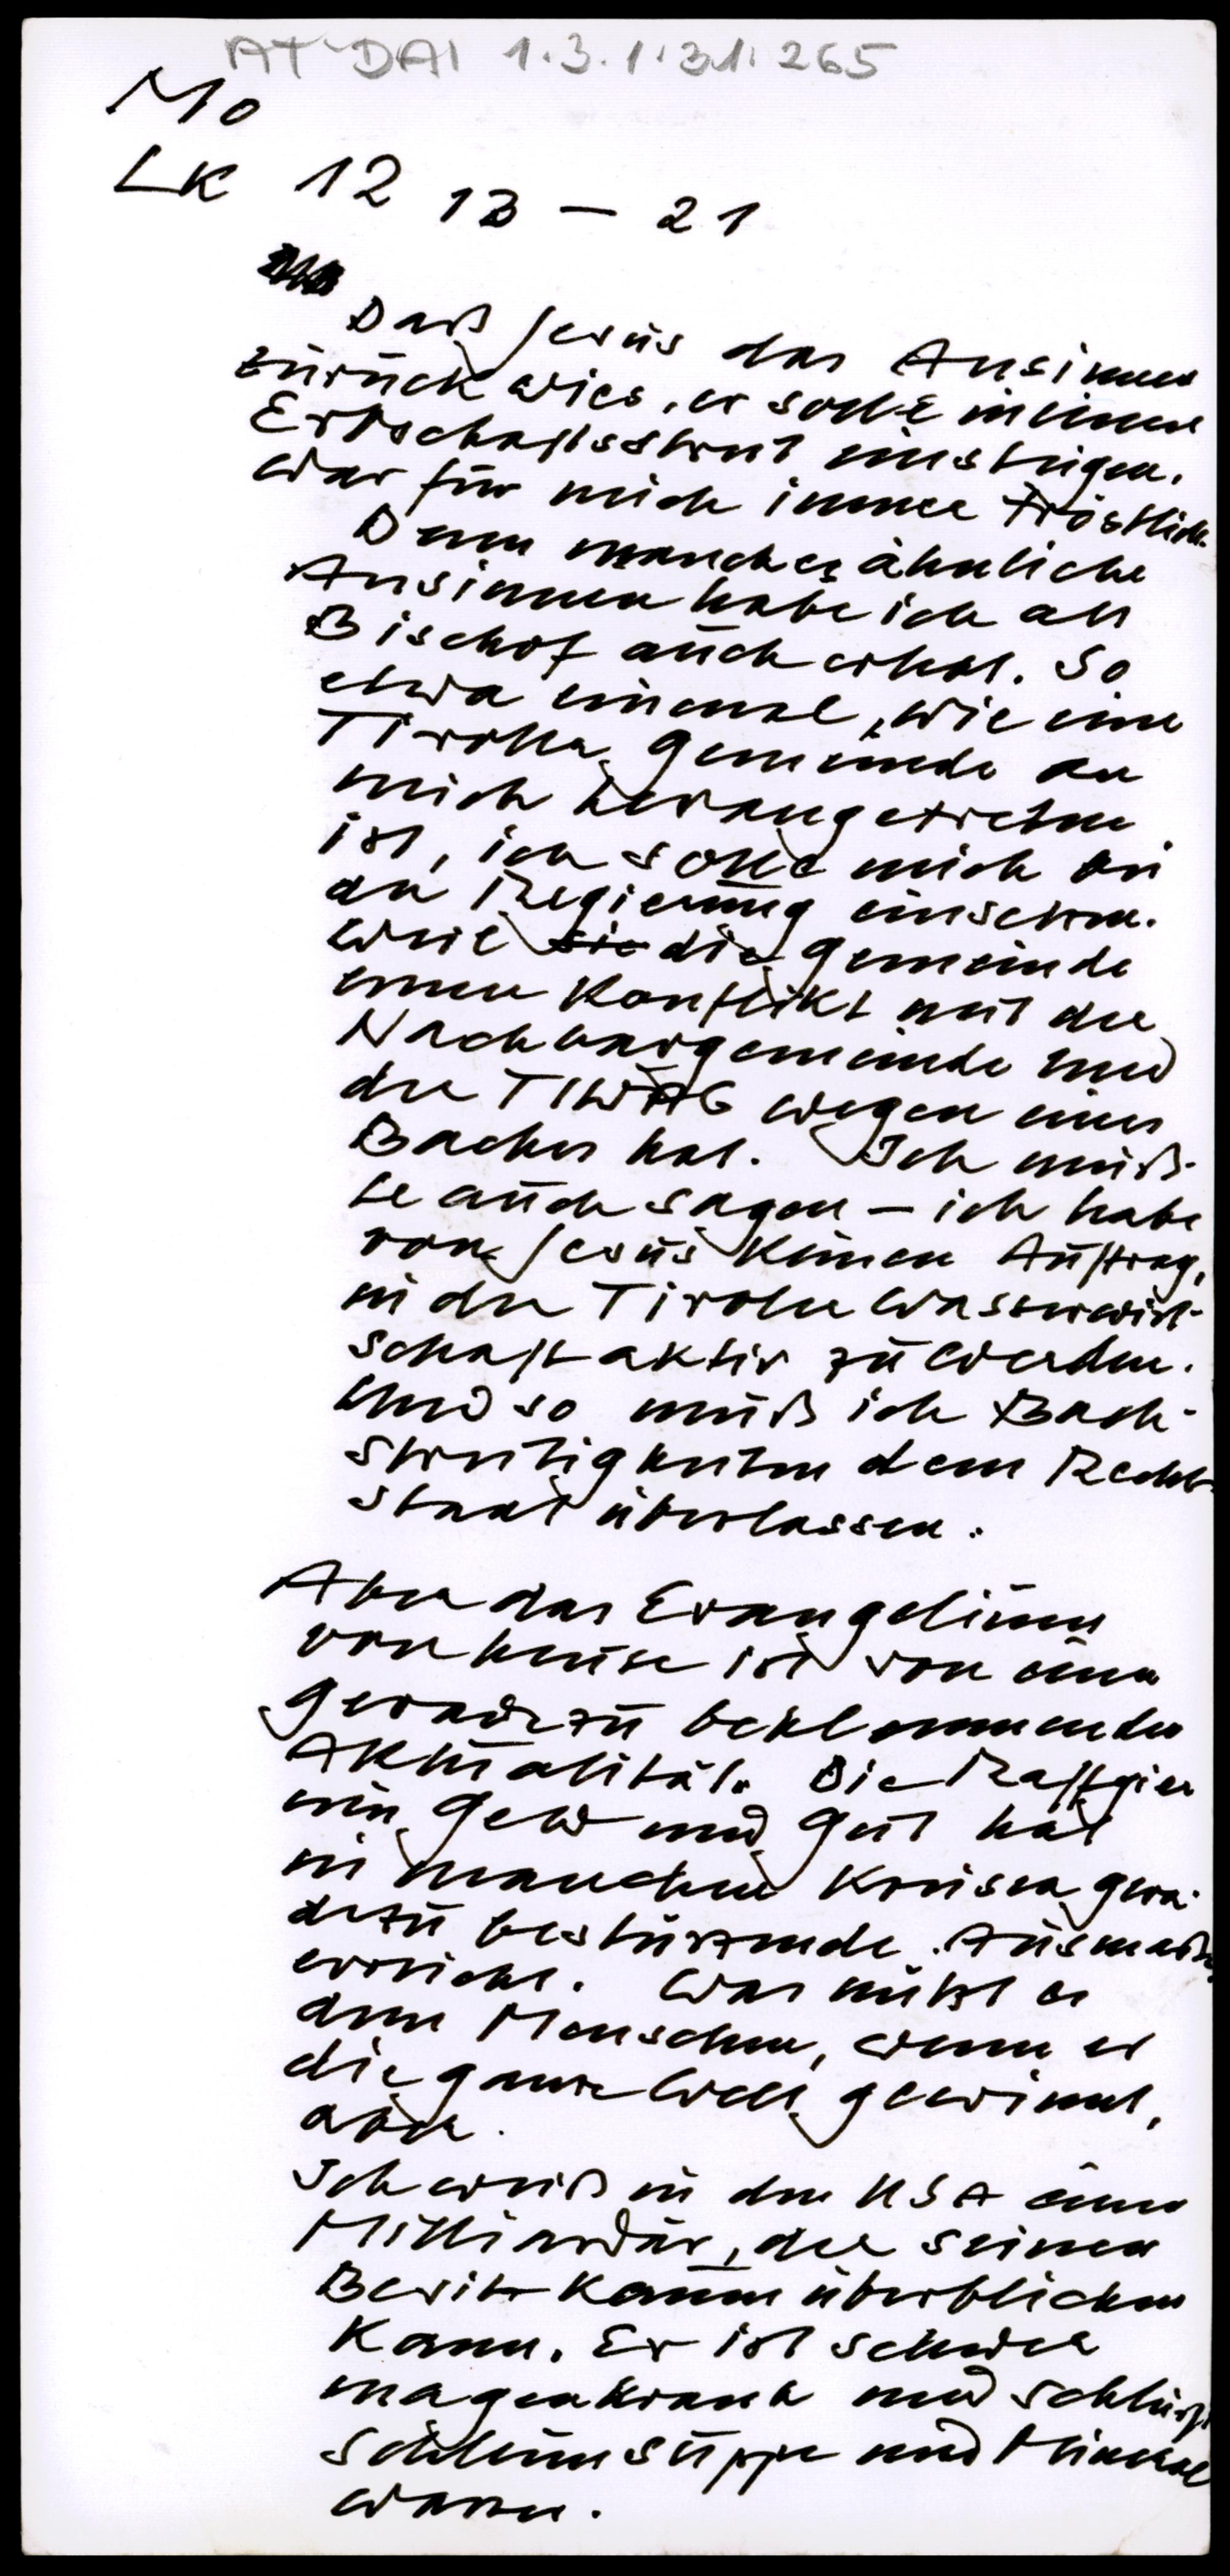 AT-DAI 1.3.1.31.265
Mo
LK 12 13 – 21
Daß Jesus das Ansinnen
zurückwies, er solle in einen
Erbschaftsstreit einsteigen,
war für mich immer tröstlich.
Denn manches ähnliche
Ansinnen habe ich als
Bischof auch erhal. So
etwa einmal, wie eine
Tiroler Gemeinde an
mich herangetreten
ist, ich solle mich bei
der Regierung einsetzen.
Weil sie die Gemeinde
einen Konflikt mit der
Nachbargemeinde und
der TIWAG wegen eines
Baches hat. Ich muß-
te auch sagen – ich habe
von Jesus keinen Auftrag,
in der Tiroler Wasserwirt-
schaft aktiv zu werden.
Und so muß ich Bach-
streitigkeiten dem Rechts-
staat überlassen.
Aber das Evangelium
von heute ist von einer
geradezu beklemmenden
Aktualität. Die Raffgier
um Geld und Gut hat
in manchen Kreisen gera-
dezu bestürzende Ausmaße
erreicht. Was nützt es
dem Menschen, wenn er
die ganze Welt gewinnt,
aber.
Ich weiß in den USA einen
Milliardär, der seinen
Besitz kaum überblicken
kann. Er ist schwer
magenkrank und schlürft
Schleimsuppe und Mineral
wasser.